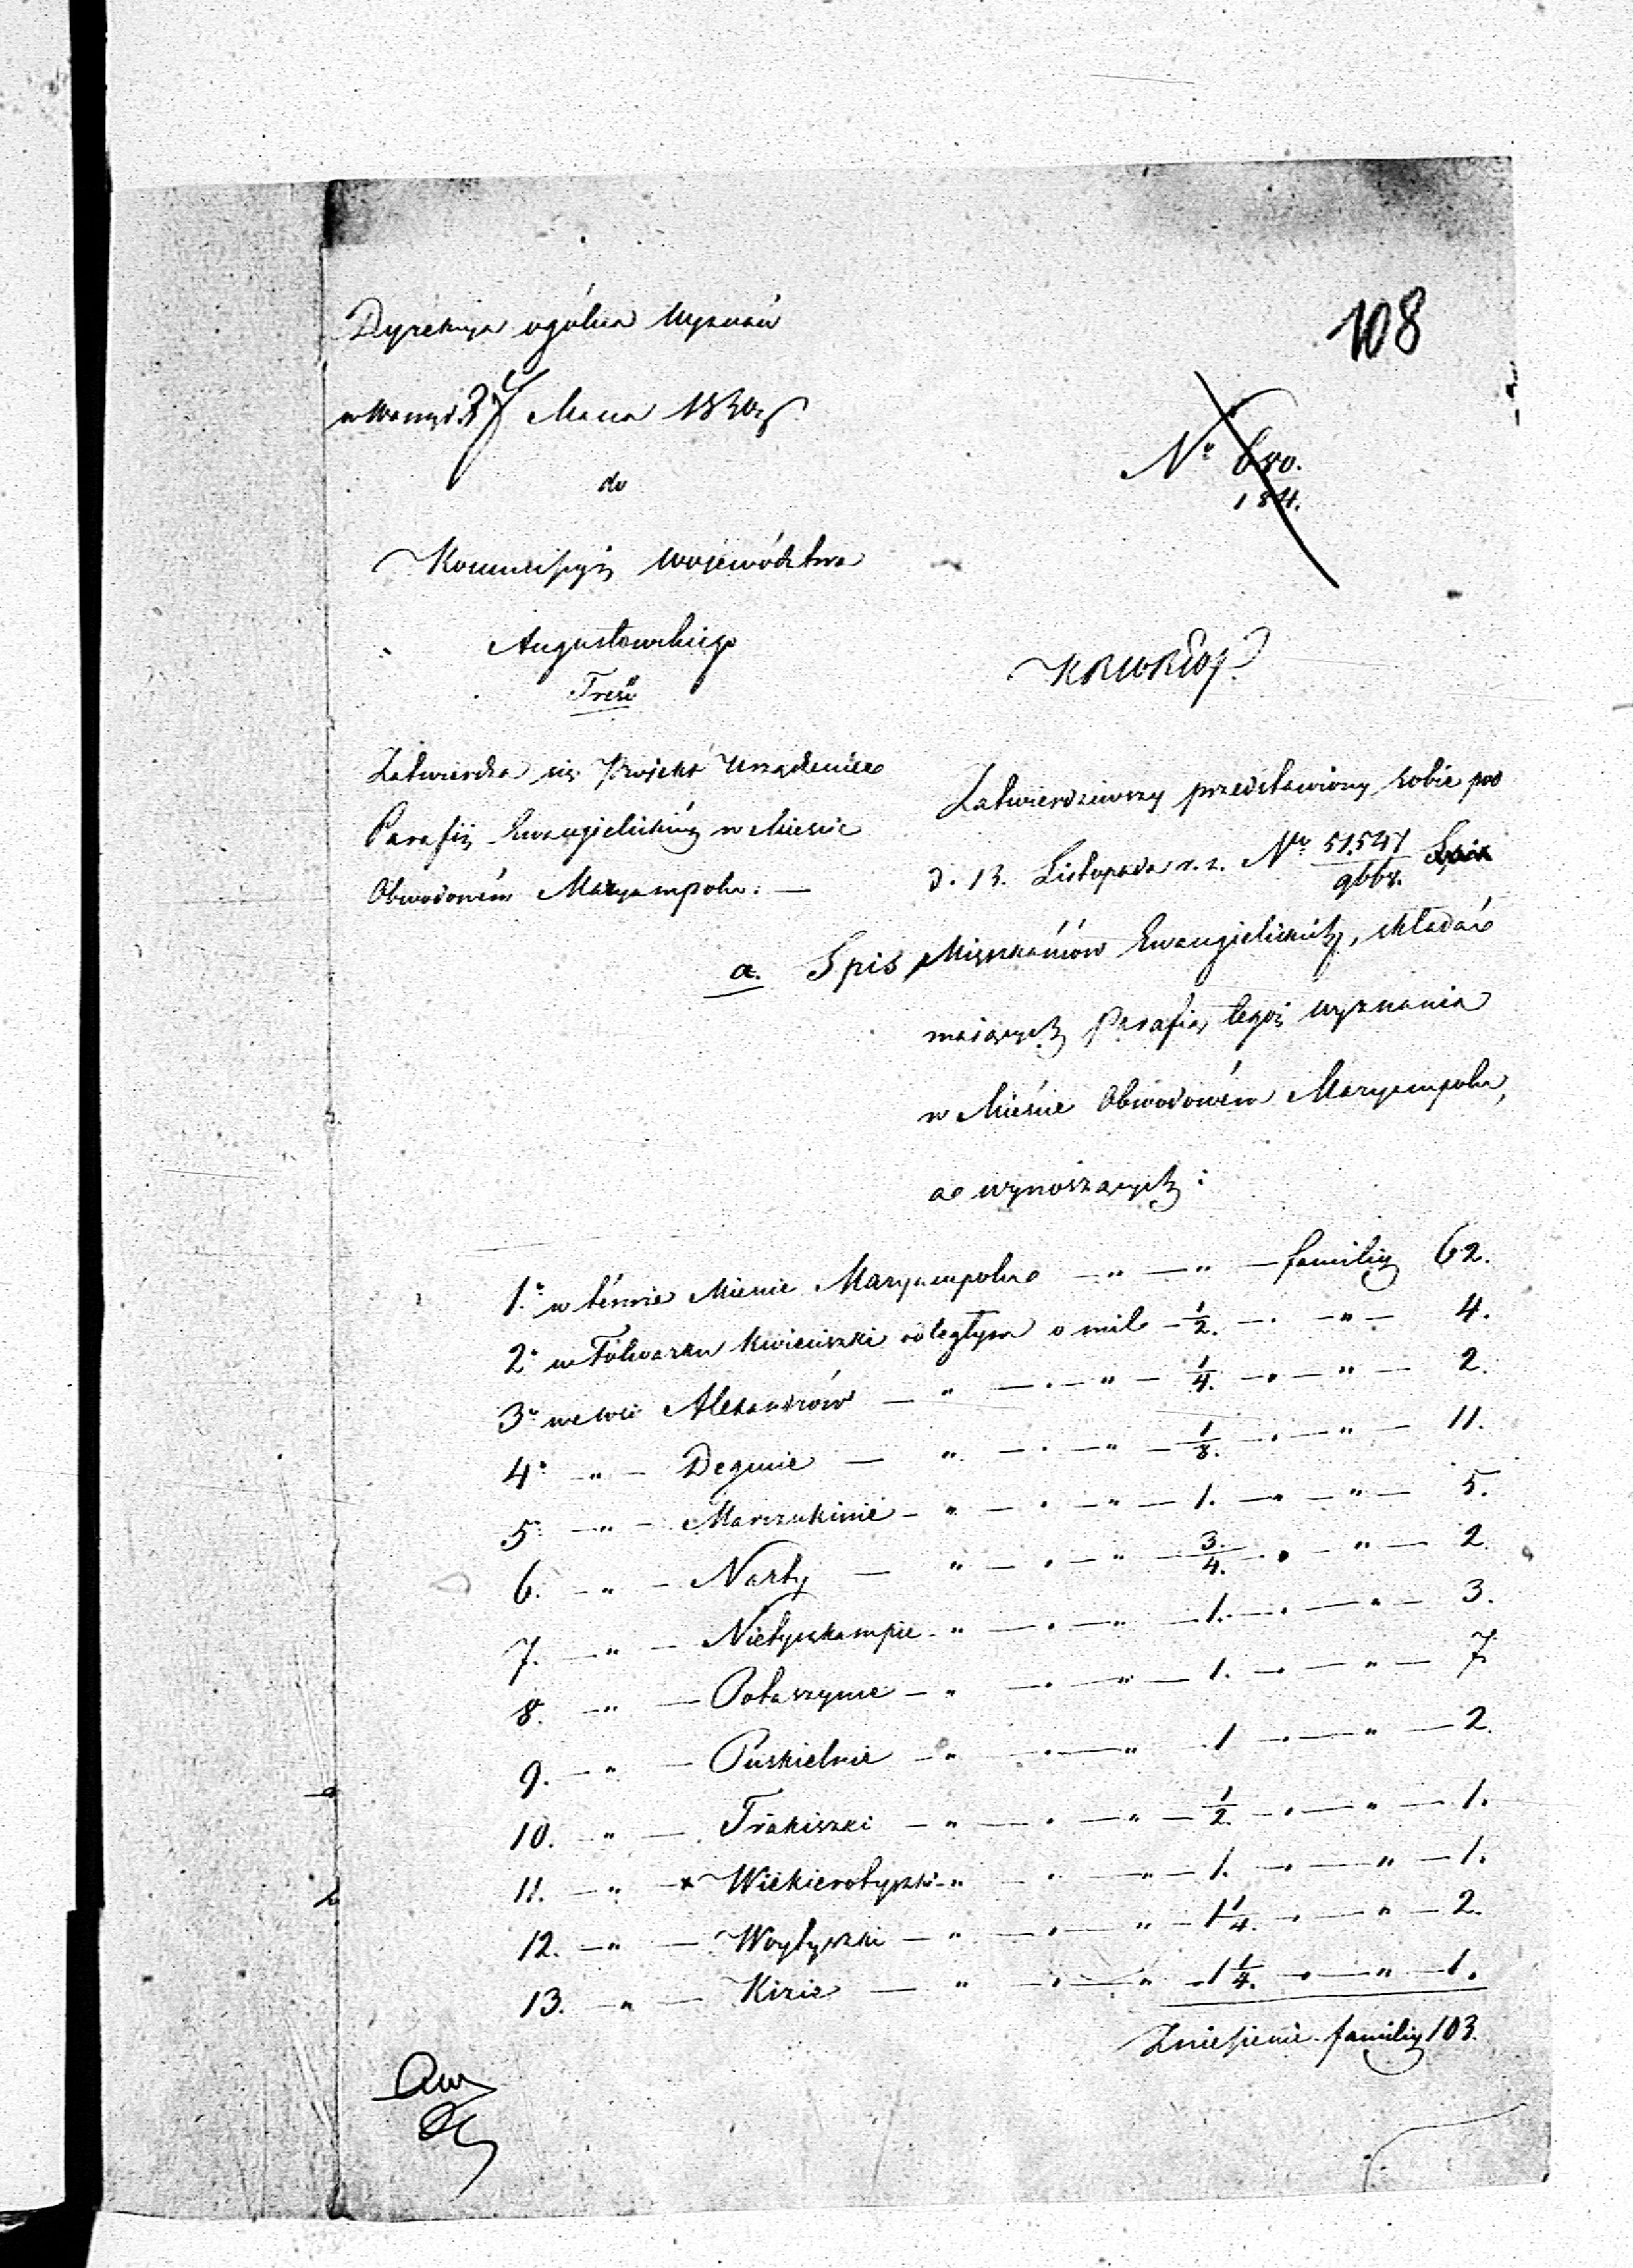 108
Dyrekcya ogólna Wyznań
Marca 1830
do
Kommissyi Województwa
Augustowskiego
Treść
Zatwierdza się Projekt urządzenia
Parafii Ewangielickiéj w Mieście
Obwodowém Maryampolu. —
Nº 680.
184.
KRWRiOP.
Zatwierdziwszy przedstawiony sobie pod
d. 13. Listopada r. z. Nr 51,547
9668.
a. Spis Mieszkańców Ewangielickich, składać
maiących Parafią tegoż wyznania
w Mieście Obwodowém Maryampolu,
a wynoszących:
1.º w témże Mieście Maryampolu — " — " — familiy 62.
2º w Folwarku Kwieciszki odległym o mil — 1/2. — . — " — 4.
3º we wsi Alexandrów — " — . — " — 1/4. — . — " — 2.
4º — " — Degucie — " — . — " — 1/8. — . — " — 11.
5 — " — Marczukinie — " — . — " — 1. — " — " — 5.
6. — " — Narty — " — . — " — 3/4. — . — " — 2.
7. — " — Nietyszkampie — " — . — " — 1. — . — " — 3.
8. — " — Potaszynie — " — . — " — 1. — . — " — 7
9. — " — Puskielnie — " — . — " 1 — . — " — 2.
10. — " — Trakiszki — " — . — " — 1/2. — . — " — 1.
11. — " — x Wiekierotyszki — " — . — " — 1. — . — " — 1.
12. — " — Woytyszki — " — . — " — 1 1/4. — . — " — 2.
13. — " — Kizie — " — . — " — 1 1/4. — . — " — 1.
Zniesienie familiy 103.